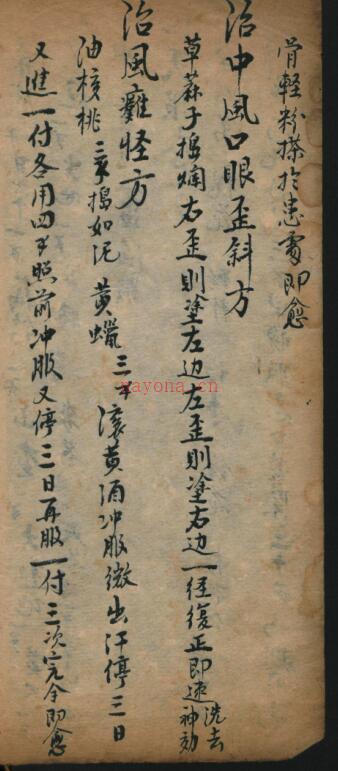 骨輕粉搽於患處即愈
治中風口眼歪斜方
草蔴子搗爛右歪則塗左边左歪則塗右边一往復正即速洗去神効
治風癱怪方
油核桃三个搗如泥 黄蠟三个 滚黄酒冲服微出汗停三日
又進一付各用四个照前冲服又停三日再服一付三次完全即愈
xayona.cn